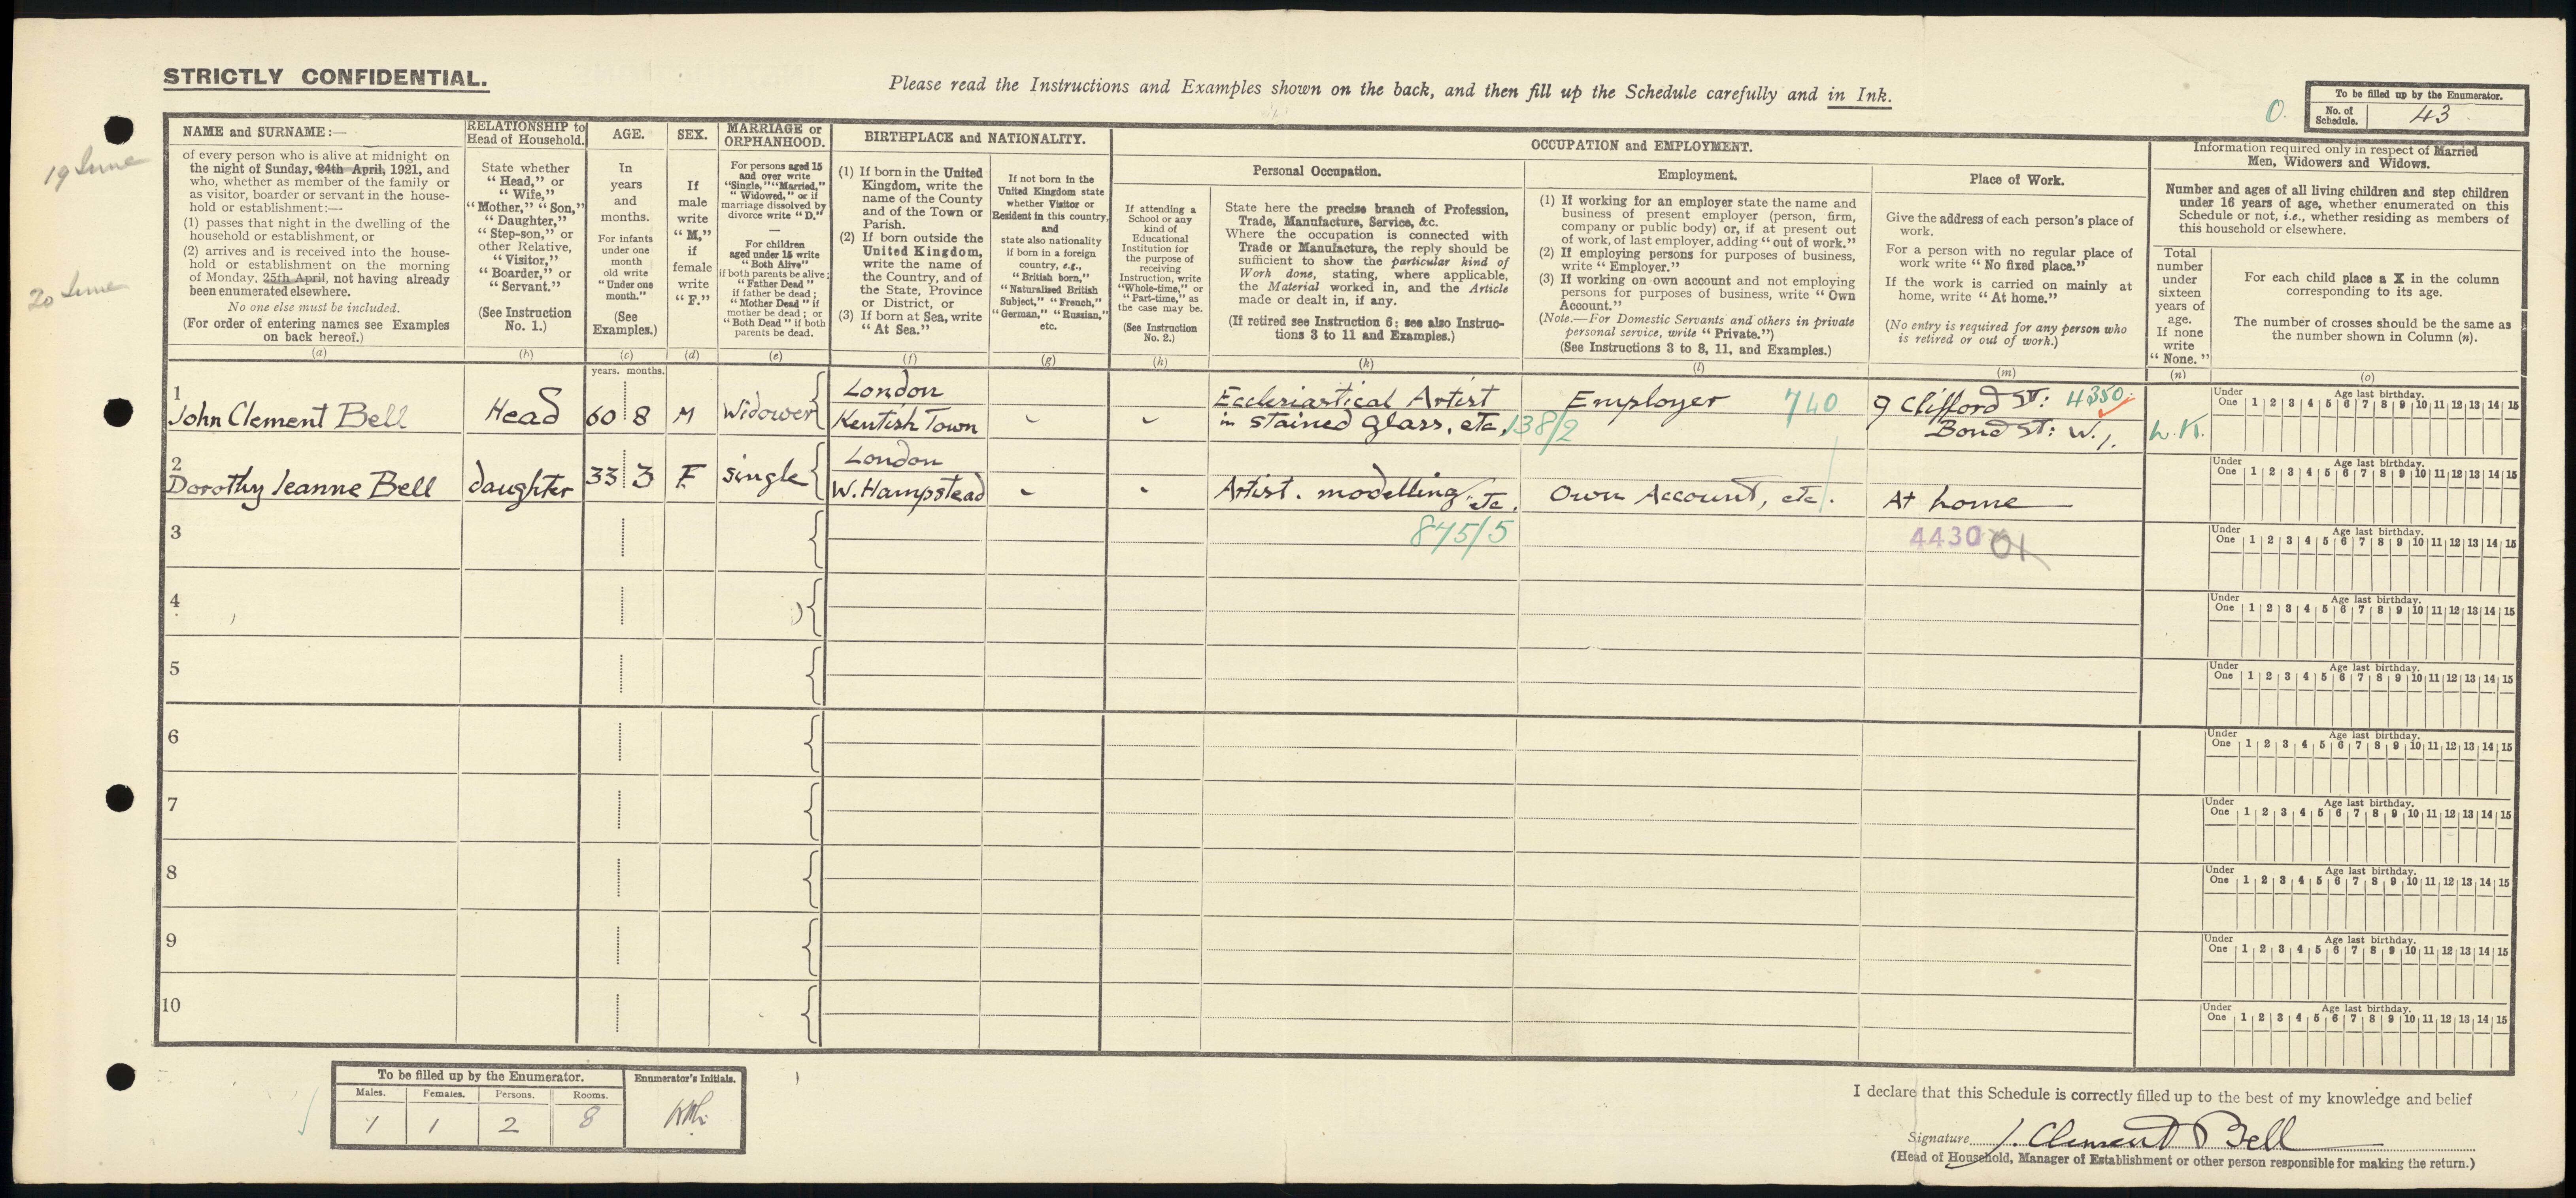 STRICTLY CONFIDENTIAL.
Please read the Instructions and Examples shown on the back, and then fill up the Schedule carefully and in Ink.
O.
To be filled up by the Enumerator.
No. of Schedule. 43
19 June
20 June
NAME and SURNAME:—
of every person who is alive at midnight on
the night of Sunday, 24th April, 1921, and
who, whether as member of the family or
as visitor, boarder or servant in the house-
hold or establishment:—
(1) passes that night in the dwelling of the
household or establishment, or
(2) arrives and is received into the house-
hold or establishment on the morning
of Monday, 25th April, not having already
been enumerated elsewhere.
No one else must be included.
(For order of entering names see Examples
on back hereof.)
(a)
RELATIONSHIP to
Head of Household.
State whether
"Head," or
"Wife,"
"Mother," "Son,"
"Daughter,"
"Step-son," or
other Relative,
"Visitor,"
"Boarder," or
"Servant."
(See Instruction
No. 1.)
(b)
AGE.
In
years
and
months.
For infants
under one
month
old write
"Under one
month."
(See
Examples.)
(c)
SEX.
If
male
write
"M,"
if
female
write
"F."
(d)
MARRIAGE or
ORPHANHOOD.
For persons aged 15
and over write
"Single," "Married,"
"Widowed," or if
marriage dissolved by
divorce write "D."
—
For children
aged under 15 write
"Both Alive"
if both parents be alive;
"Father Dead"
if father be dead;
"Mother Dead" if
mother be dead; or
"Both Dead" if both
parents be dead.
(e)
BIRTHPLACE and NATIONALITY.
(1) If born in the United
Kingdom, write the
name of the County
and of the Town or
Parish.
(2) If born outside the
United Kingdom,
write the name of
the Country, and of
the State, Province
or District, or
(3) If born at Sea, write
"At Sea."
(f)
If not born in the
United Kingdom state
whether Visitor or
Resident in this country,
and
state also nationality
if born in a foreign
country, e.g.,
"British born,"
"Naturalised British
Subject," "French,"
"German," "Russian,"
etc.
(g)
OCCUPATION and EMPLOYMENT.
If attending a
School or any
kind of
Educational
Institution for
the purpose of
receiving
Instruction, write
"Whole-time," or
"Part-time," as
the case may be.
(See Instruction
No. 2.)
(h)
Personal Occupation.
State here the precise branch of Profession,
Trade, Manufacture, Service, &c.
Where the occupation is connected with
Trade or Manufacture, the reply should be
sufficient to show the particular kind of
Work done, stating, where applicable,
the Material worked in, and the Article
made or dealt in, if any.
(If retired see Instruction 6; see also Instruc-
tions 3 to 11 and Examples.)
(k)
Employment.
(1) If working for an employer state the name and
business of present employer (person, firm,
company or public body) or, if at present out
of work, of last employer, adding "out of work."
(2) If employing persons for purposes of business,
write "Employer."
(3) If working on own account and not employing
persons for purposes of business, write "Own
Account."
(Note.—For Domestic Servants and others in private
personal service, write "Private.")
(See Instructions 3 to 8, 11, and Examples.)
(l)
Place of Work.
Give the address of each person's place of
work.
For a person with no regular place of
work write "No fixed place."
If the work is carried on mainly at
home, write "At home."
(No entry is required for any person who
is retired or out of work.)
(m)
Information required only in respect of Married
Men, Widowers and Widows.
Number and ages of all living children and step children
under 16 years of age, whether enumerated on this
Schedule or not, i.e., whether residing as members of
this household or elsewhere.
Total
number
under
sixteen
years of
age.
If none
write
"None."
(n)
For each child place a X in the column
corresponding to its age.
The number of crosses should be the same as
the number shown in Column (n).
(o)
years. months.
1
John Clement Bell
Head
60 8
M
Widower
London
Kentish Town
-
-
Ecclesiastical Artist
in Stained Glass, etc, 138/2
Employer 740
9 Clifford St: 4350.
Bond St: W.1.
Under One Age last birthday. 1 2 3 4 5 6 7 8 9 10 11 12 13 14 15
2
Dorothy Jeanne Bell
daughter
33 3
F
Single
London
W. Hampstead
-
-
Artist. modelling, etc.
Own Account, etc.
At home
Under One Age last birthday. 1 2 3 4 5 6 7 8 9 10 11 12 13 14 15
3
875/5
4430 01
Under One Age last birthday. 1 2 3 4 5 6 7 8 9 10 11 12 13 14 15
4
Under One Age last birthday. 1 2 3 4 5 6 7 8 9 10 11 12 13 14 15
5
Under One Age last birthday. 1 2 3 4 5 6 7 8 9 10 11 12 13 14 15
6
Under One Age last birthday. 1 2 3 4 5 6 7 8 9 10 11 12 13 14 15
7
Under One Age last birthday. 1 2 3 4 5 6 7 8 9 10 11 12 13 14 15
8
Under One Age last birthday. 1 2 3 4 5 6 7 8 9 10 11 12 13 14 15
9
Under One Age last birthday. 1 2 3 4 5 6 7 8 9 10 11 12 13 14 15
10
Under One Age last birthday. 1 2 3 4 5 6 7 8 9 10 11 12 13 14 15
To be filled up by the Enumerator.
Males. Females. Persons. Rooms.
1 1 2 8
Enumerator's Initials.
I declare that this Schedule is correctly filled up to the best of my knowledge and belief
Signature J. Clement Bell
(Head of Household, Manager of Establishment or other person responsible for making the return.)